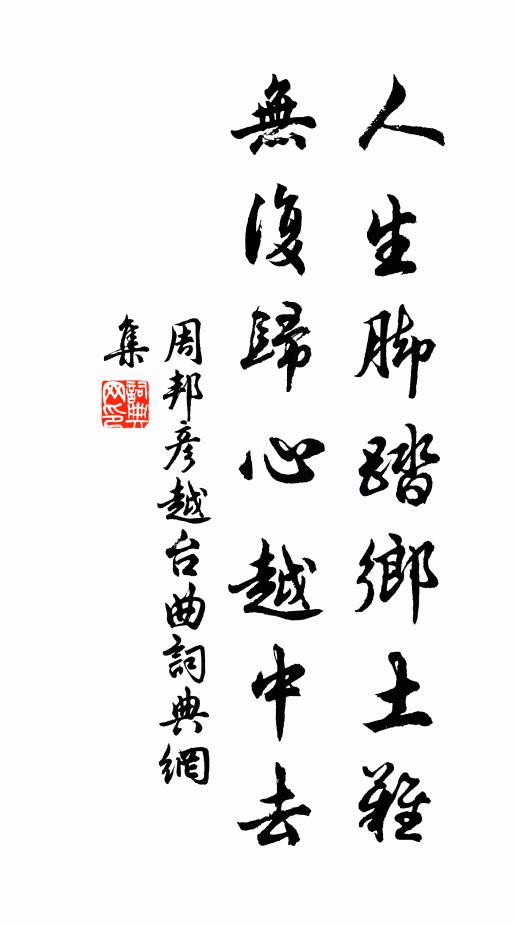 人生脚踏鄉土難
無復歸心越中去
周邦彦越台曲詞典網
集
詞典網印